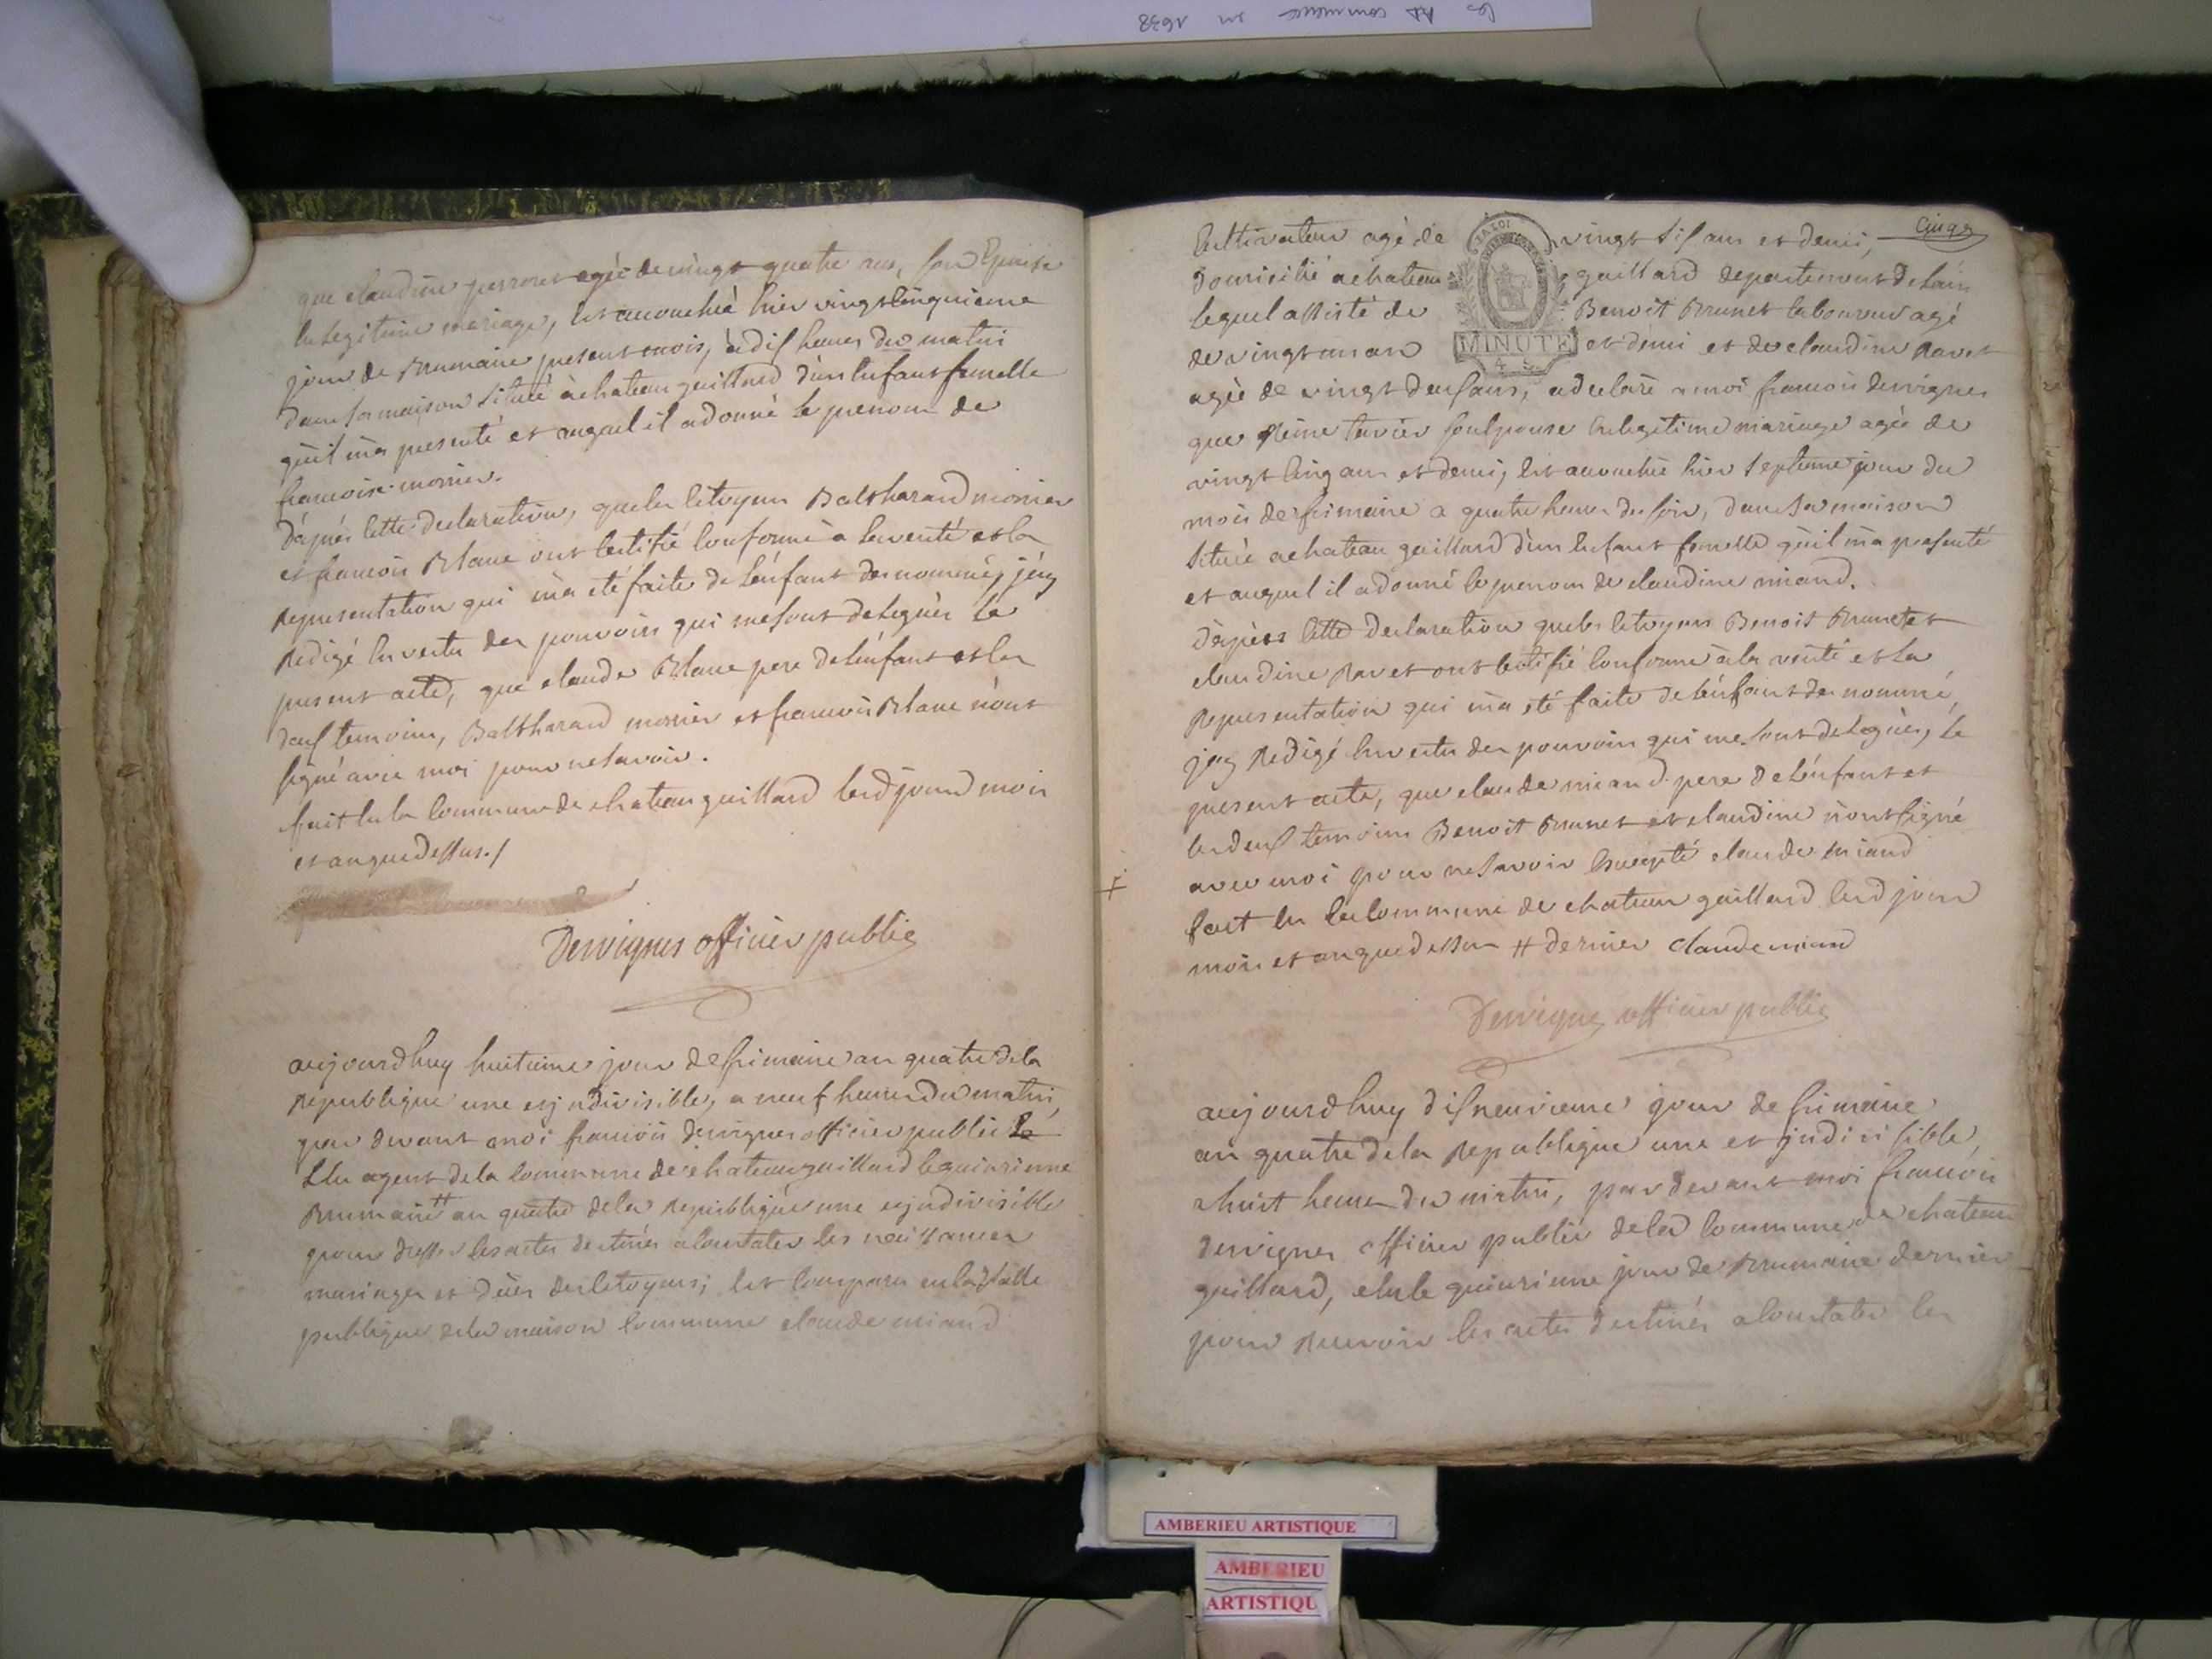 que claudine perroset agée de vingt quatre ans, son Epouse
en legitime mariage, est accouchéé hier vingt cinquieme
jour de Brumaire present mois, à dis heures du matin
dans sa maison située à chateau gaillard d'un enfant femelle
qu'il m'a presenté et auquel il a donné le prenom de
francoise monier.
d'aprés cette declaration, que les citoyens Balthazard monier
et francois Blanc ont certifié conforme a la verité et la
representation qui m'a eté faite de l'enfant denommé, j'ay
redigé en vertu des pouvoirs qui me sont delegués le
present acte, que claude Blanc pere de l'enfant et les
deux temoins, Balthazard monier et francois Blanc n'ont
signé avec moi pour ne savoir.
fait en la commune de chateau gaillard lesd jours mois
et an que dessus./
Dervignes officier public
aujourdhuy huitieme jour de frimaire an quatre de la
republique une et jndivisible, a neuf heures du matin,
par devant moi francois dervignes officier public
Elu agent de la commune de chateau gaillard le quinzieme
Brumaire # an quatre de la republique une et jndivisible
pour dresser les actes destinés a constater les naissances
mariages et décès des citoyens; est comparu en la salle
publique de la maison commune claude miand
Cinqs
Cultivateur agé de vingt sis ans et demi,
Domicilié a chateau gaillard departement de L'ain
lequel assisté de Benoit Brunet laboureur agé
de vingt un ans et demi et de claudine Ravet
LA LOI
MINUTE
agée de vingt deux ans, a declaré a moi francois dervignes
que Reine tavier son Epouse en legitime mariage agée de
vingt cinq ans et demi, est accouchée hier septieme jour du
mois de frimaire a quatre heures du soir, dans sa maison
située a chateau gaillard d'un enfant femelle qu'il m'a presenté
et auquel il a donné le prenom de claudine miand.
d'après cette declaration que les citoyens Benoit Brunet et
claudine Ravet ont certifié conforme à la verité et la
representation qui m'a eté faite de l'enfant denommé,
j'ay redigé en vertu des pouvoirs qui me sont delegués, le
present acte, que claude miand pere de l'enfant et
les deux temoins Benoit Brunet et claudine n'ont signé
avec moi pour ne savoir Excepté claude miand
fait en la commune de chateau gaillard lesd jours
mois et an que dessus # dernier claude miand
Dervignes officier public
aujourdhuy disneuvieme jour de frimaire
an quatre de la republique une et jndivisible,
a huit heures du matin, par devant moi francois
dervignes officier public de la commune de chateau
gaillard, elu le quinzieme jour de Brumaire dernier
pour recevoir les actes destinés a constater les
AMBERIEU ARTISTIQUE
AMBERIEU
ARTISTIQU